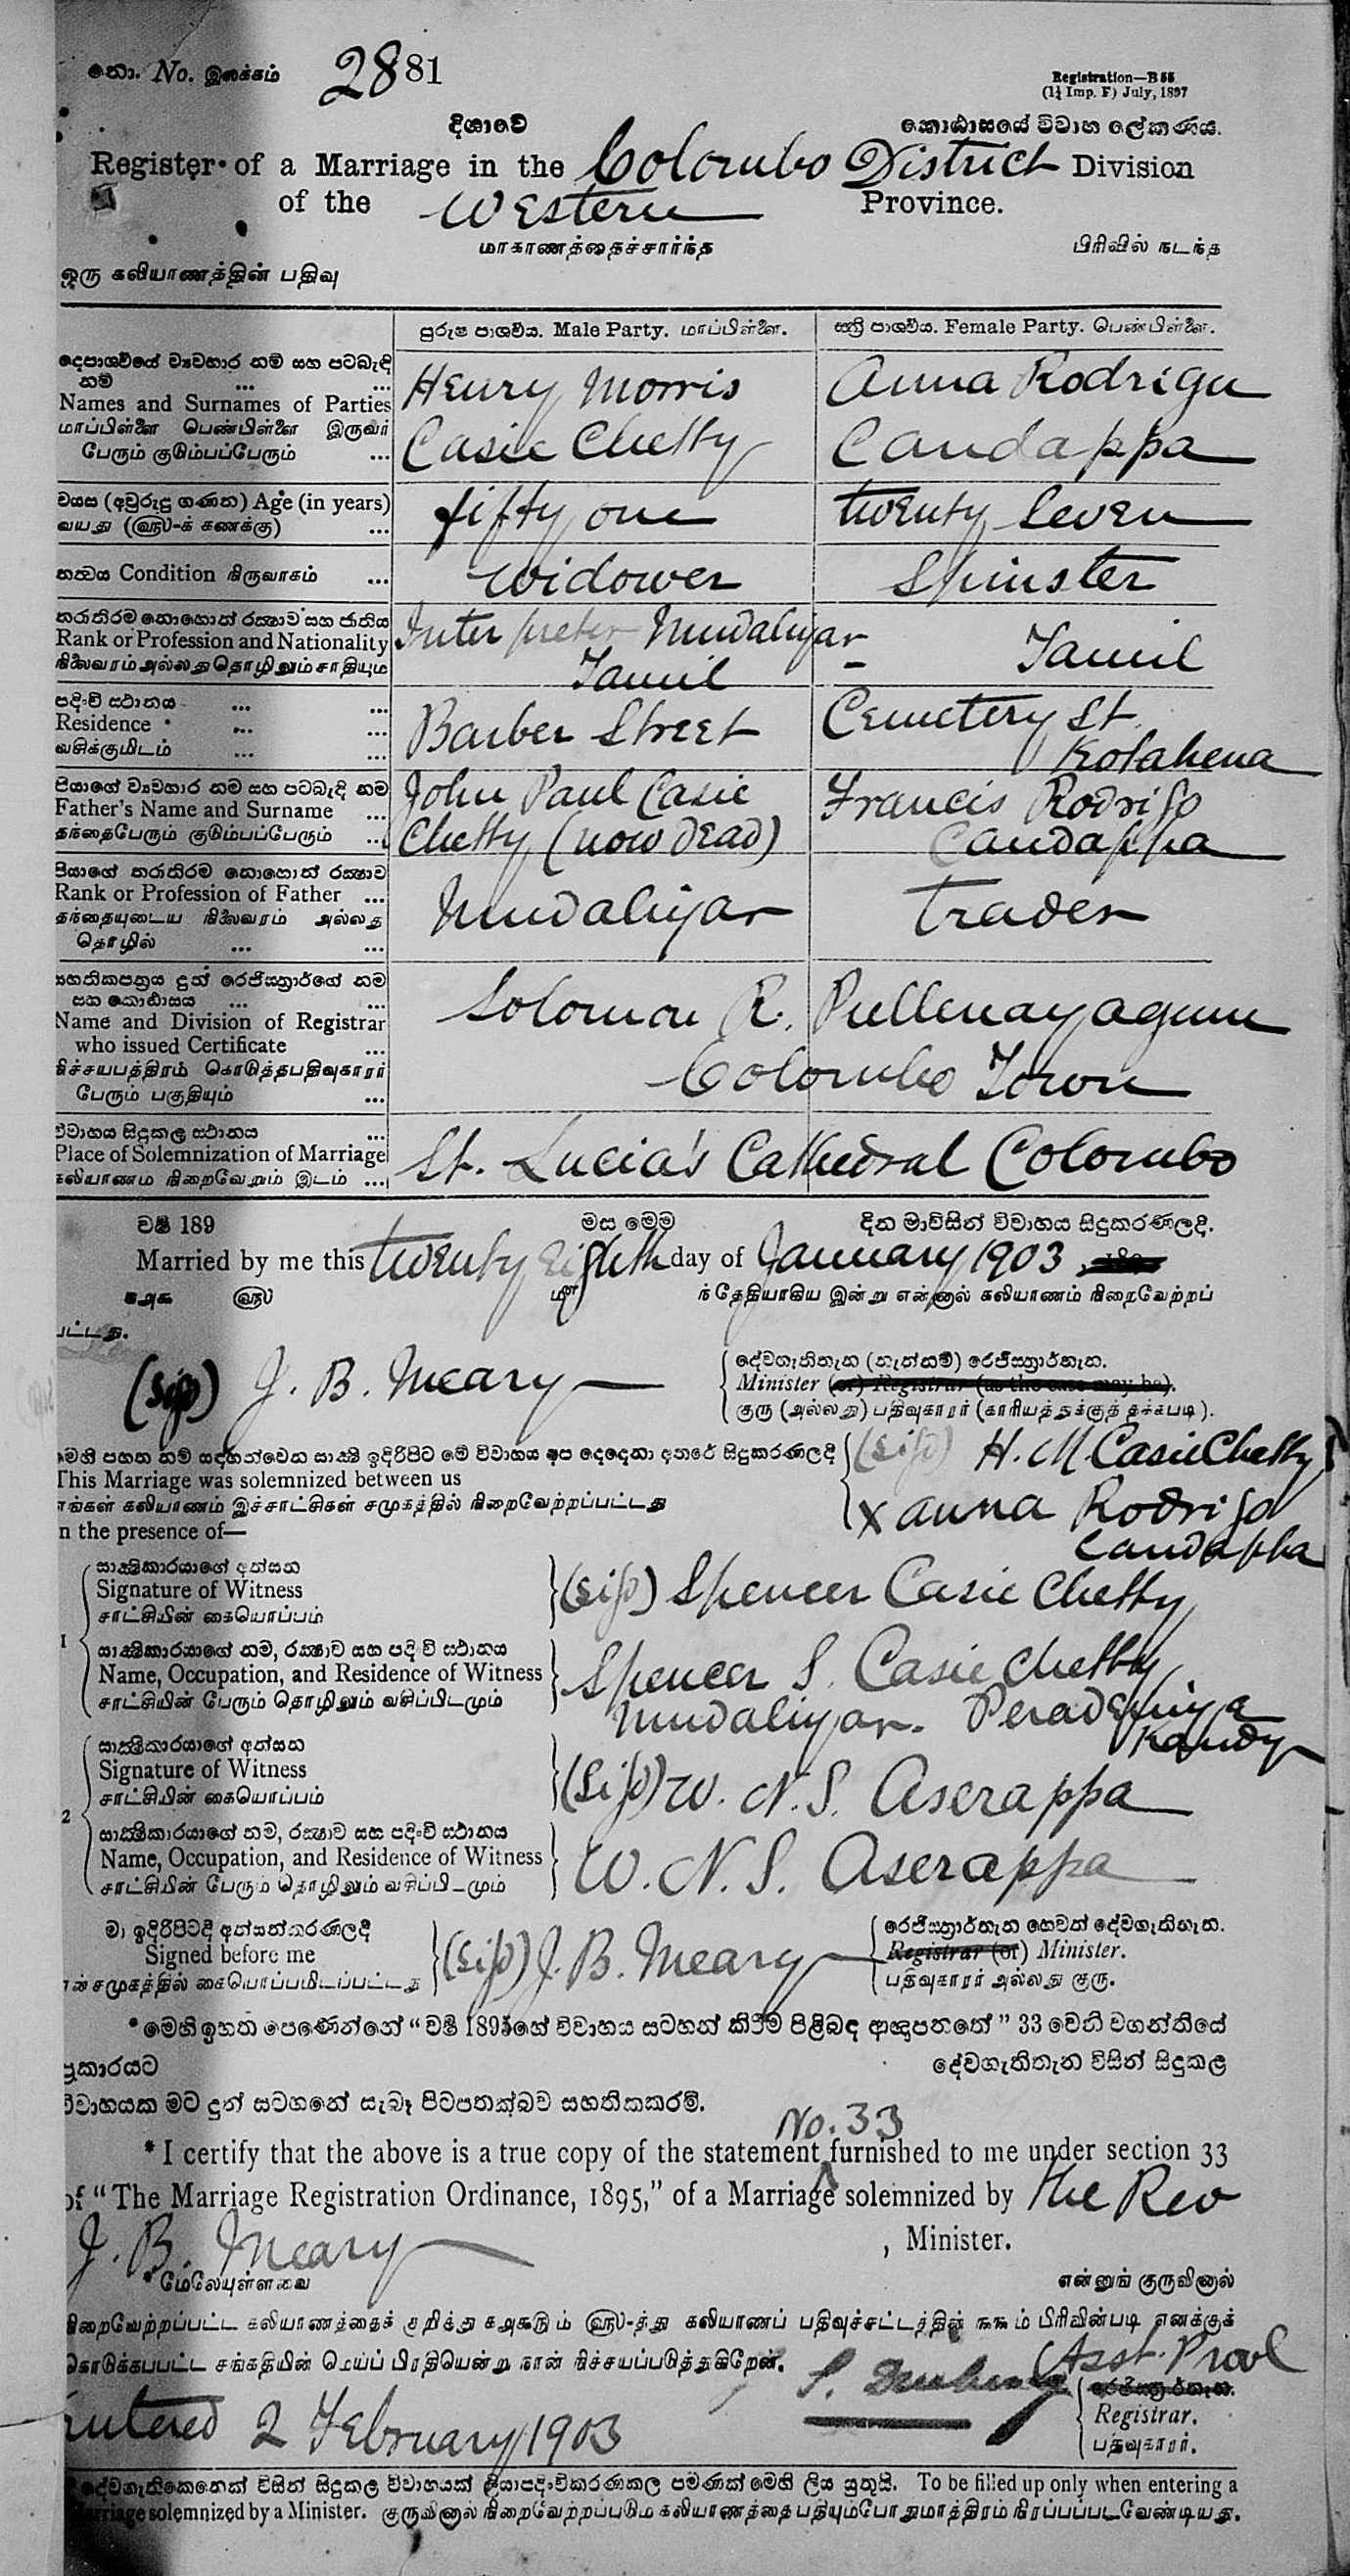 නො. No. இலக்கம் 2881
Registration—B 55
(1½ Imp. F) July, 1897
දිශාවේ කොඨාසයේ විවාහ ලේකණය.
Register of a Marriage in the Colombo District Division
of the Western Province.
மாகாணத்தைச்சார்ந்த பிரிவில் நடந்த
ஒரு கலியாணத்தின் பதிவு
පුරුෂ පාශර්‍වය. Male Party. மாப்பிள்ளை. ස්ත්‍රී පාශර්‍වය. Female Party. பெண்பிள்ளை.
දෙපාශර්‍වයේ ව්‍යවහාර නම් සහ පටබැඳි
නම් ... ...
Names and Surnames of Parties Henry Morris Anna Rodrigu
மாப்பிள்ளை பெண்பிள்ளை இருவர்
பேரும் குடும்பப்பேரும் ... Casie Chetty Candappa
වයස (අවුරුදු ගණන) Age (in years) fifty one twenty seven
வயது (௵-க் கணக்கு) ...
තත්‍වය Condition நிருவாகம் ... Widower Spinster
තරාතිරම නොහොත් රක්‍ෂාව සහ ජාතිය
Rank or Profession and Nationality Interpreter Mudaliyar – Tamil
நிலைவரம் அல்லது தொழிலும் சாதியும் Tamil
පදිංචි ස්ථානය ... ...
Residence ... ... Barber Street Cemetery St.
வசிக்குமிடம் ... ... Kotahena
පියාගේ ව්‍යවහාර නම සහ පටබැඳි නම John Paul Casie Francis Rodrigo
Father's Name and Surname ...
தந்தைபேரும் குடும்பப்பேரும் ... Chetty (now dead) Candappa
පියාගේ තරාතිරම නොහොත් රක්‍ෂාව
Rank or Profession of Father ... Mudaliyar Trader
தந்தையுடைய நிலைவரம் அல்லது
தொழில் ... ...
සහතිකපත්‍රය දුන් රෙජිස්ත්‍රාර්ගේ නම
සහ කොඨාසය ... ...
Name and Division of Registrar Solomon R. Pullenayagum
who issued Certificate ...
நிச்சயபத்திரம் கொடுத்தபதிவுகாரர் Colombo Town
பேரும் பகுதியும் ...
විවාහය සිදුකල ස්ථානය ...
Place of Solemnization of Marriage St. Lucia's Cathedral Colombo
கலியாணம் நிறைவேறும் இடம் ...
වර්‍ෂ 189 මස මෙම දින මාවිසින් විවාහය සිදුකරණලදි.
Married by me this twenty Eighth day of January 1903 189
கஅக ௵ ௴ ந்தேதியாகிய இன்று என்னால் கலியாணம் நிறைவேற்றப்
பட்டது.
(Sig) J. B. Meary
දේවගැතිතැන (නැත්නම්) රෙජිස්ත්‍රාර්තැන.
Minister (or) Registrar (as the case may be).
குரு (அல்லது) பதிவுகாரர் (காரியத்துக்குத் தக்கபடி).
මෙහි පහත නම් සඳහන්වෙන සාක්‍ෂි ඉදිරිපිට මේ විවාහය අප දෙදෙනා අතරේ සිදුකරණලදි (Sig) H. M. Casie Chetty
This Marriage was solemnized between us
எங்கள் கலியாணம் இச்சாட்சிகள் சமுகத்தில் நிறைவேற்றப்பட்டது X Anna Rodrigo
n the presence of— Candappa
සාක්‍ෂිකාරයාගේ අත්සන
Signature of Witness (Sig) Spencer Casie Chetty
சாட்சியின் கையொப்பம்
1
සාක්‍ෂිකාරයාගේ නම, රක්‍ෂාව සහ පදිංචි ස්ථානය
Name, Occupation, and Residence of Witness Spencer S. Casie Chetty
சாட்சியின் பேரும் தொழிலும் வசிப்பிடமும் Mudaliyar. Peradeniya
Kandy
සාක්‍ෂිකාරයාගේ අත්සන
Signature of Witness (Sig) W. N. S. Aserappa
சாட்சியின் கையொப்பம்
2
සාක්‍ෂිකාරයාගේ නම, රක්‍ෂාව සහ පදිංචි ස්ථානය
Name, Occupation, and Residence of Witness W. N. S. Aserappa
சாட்சியின் பேரும் தொழிலும் வசிப்பிடமும்
මා ඉදිරිපිටදී අත්සන්කරණලදී රෙජිස්ත්‍රාර්තැන හෙවත් දේවගැතිතැන.
Signed before me (Sig) J. B. Meary Registrar (or) Minister.
என் சமுகத்தில் கையொப்பமிடப்பட்டது பதிவுகாரர் அல்லது குரு.
* මෙහි ඉහත පෙණෙන්නේ “වර්‍ෂ 1895හේ විවාහය සටහන් කිරීම පිළිබඳ ආඥාපනතේ” 33 වෙනි වගන්තියේ
ප්‍රකාරයට දේවගැතිතැන විසින් සිදුකළ
විවාහයක මට දුන් සටහනේ සැබෑ පිටපතක්බව සහතිකකරමි.
No. 33
* I certify that the above is a true copy of the statement furnished to me under section 33
of “The Marriage Registration Ordinance, 1895,” of a Marriage solemnized by the Rev
J. B. Meary , Minister.
* மேலேயுள்ளவை என்னுங் குருவினால்
நிறைவேற்றப்பட்ட கலியாணத்தைக் குறித்து கஅகூடு ம் ௵-த்து கலியாணப் பதிவுச்சட்டத்தின் ௩௩ ம் பிரிவின்படி எனக்குக்
கொடுக்கப்பட்ட சங்கதியின் மெய்ப் பிரதியென்று நான் நிச்சயப்படுத்துகிறேன். Asst. Provl
රෙජිස්ත්‍රාර්තැන.
Entered 2 February 1903 Registrar.
பதிவுகாரர்.
දේවගැතිකෙනෙක් විසින් සිදුකල විවාහයක් ලියාපදිංචිකරණකල පමණක් මෙහි ලිය යුතුයි. To be filled up only when entering a
Marriage solemnized by a Minister. குருவினால் நிறைவேற்றப்படும் கலியாணத்தை பதியும்போதுமாத்திரம் நிரப்பப்படவேண்டியது.